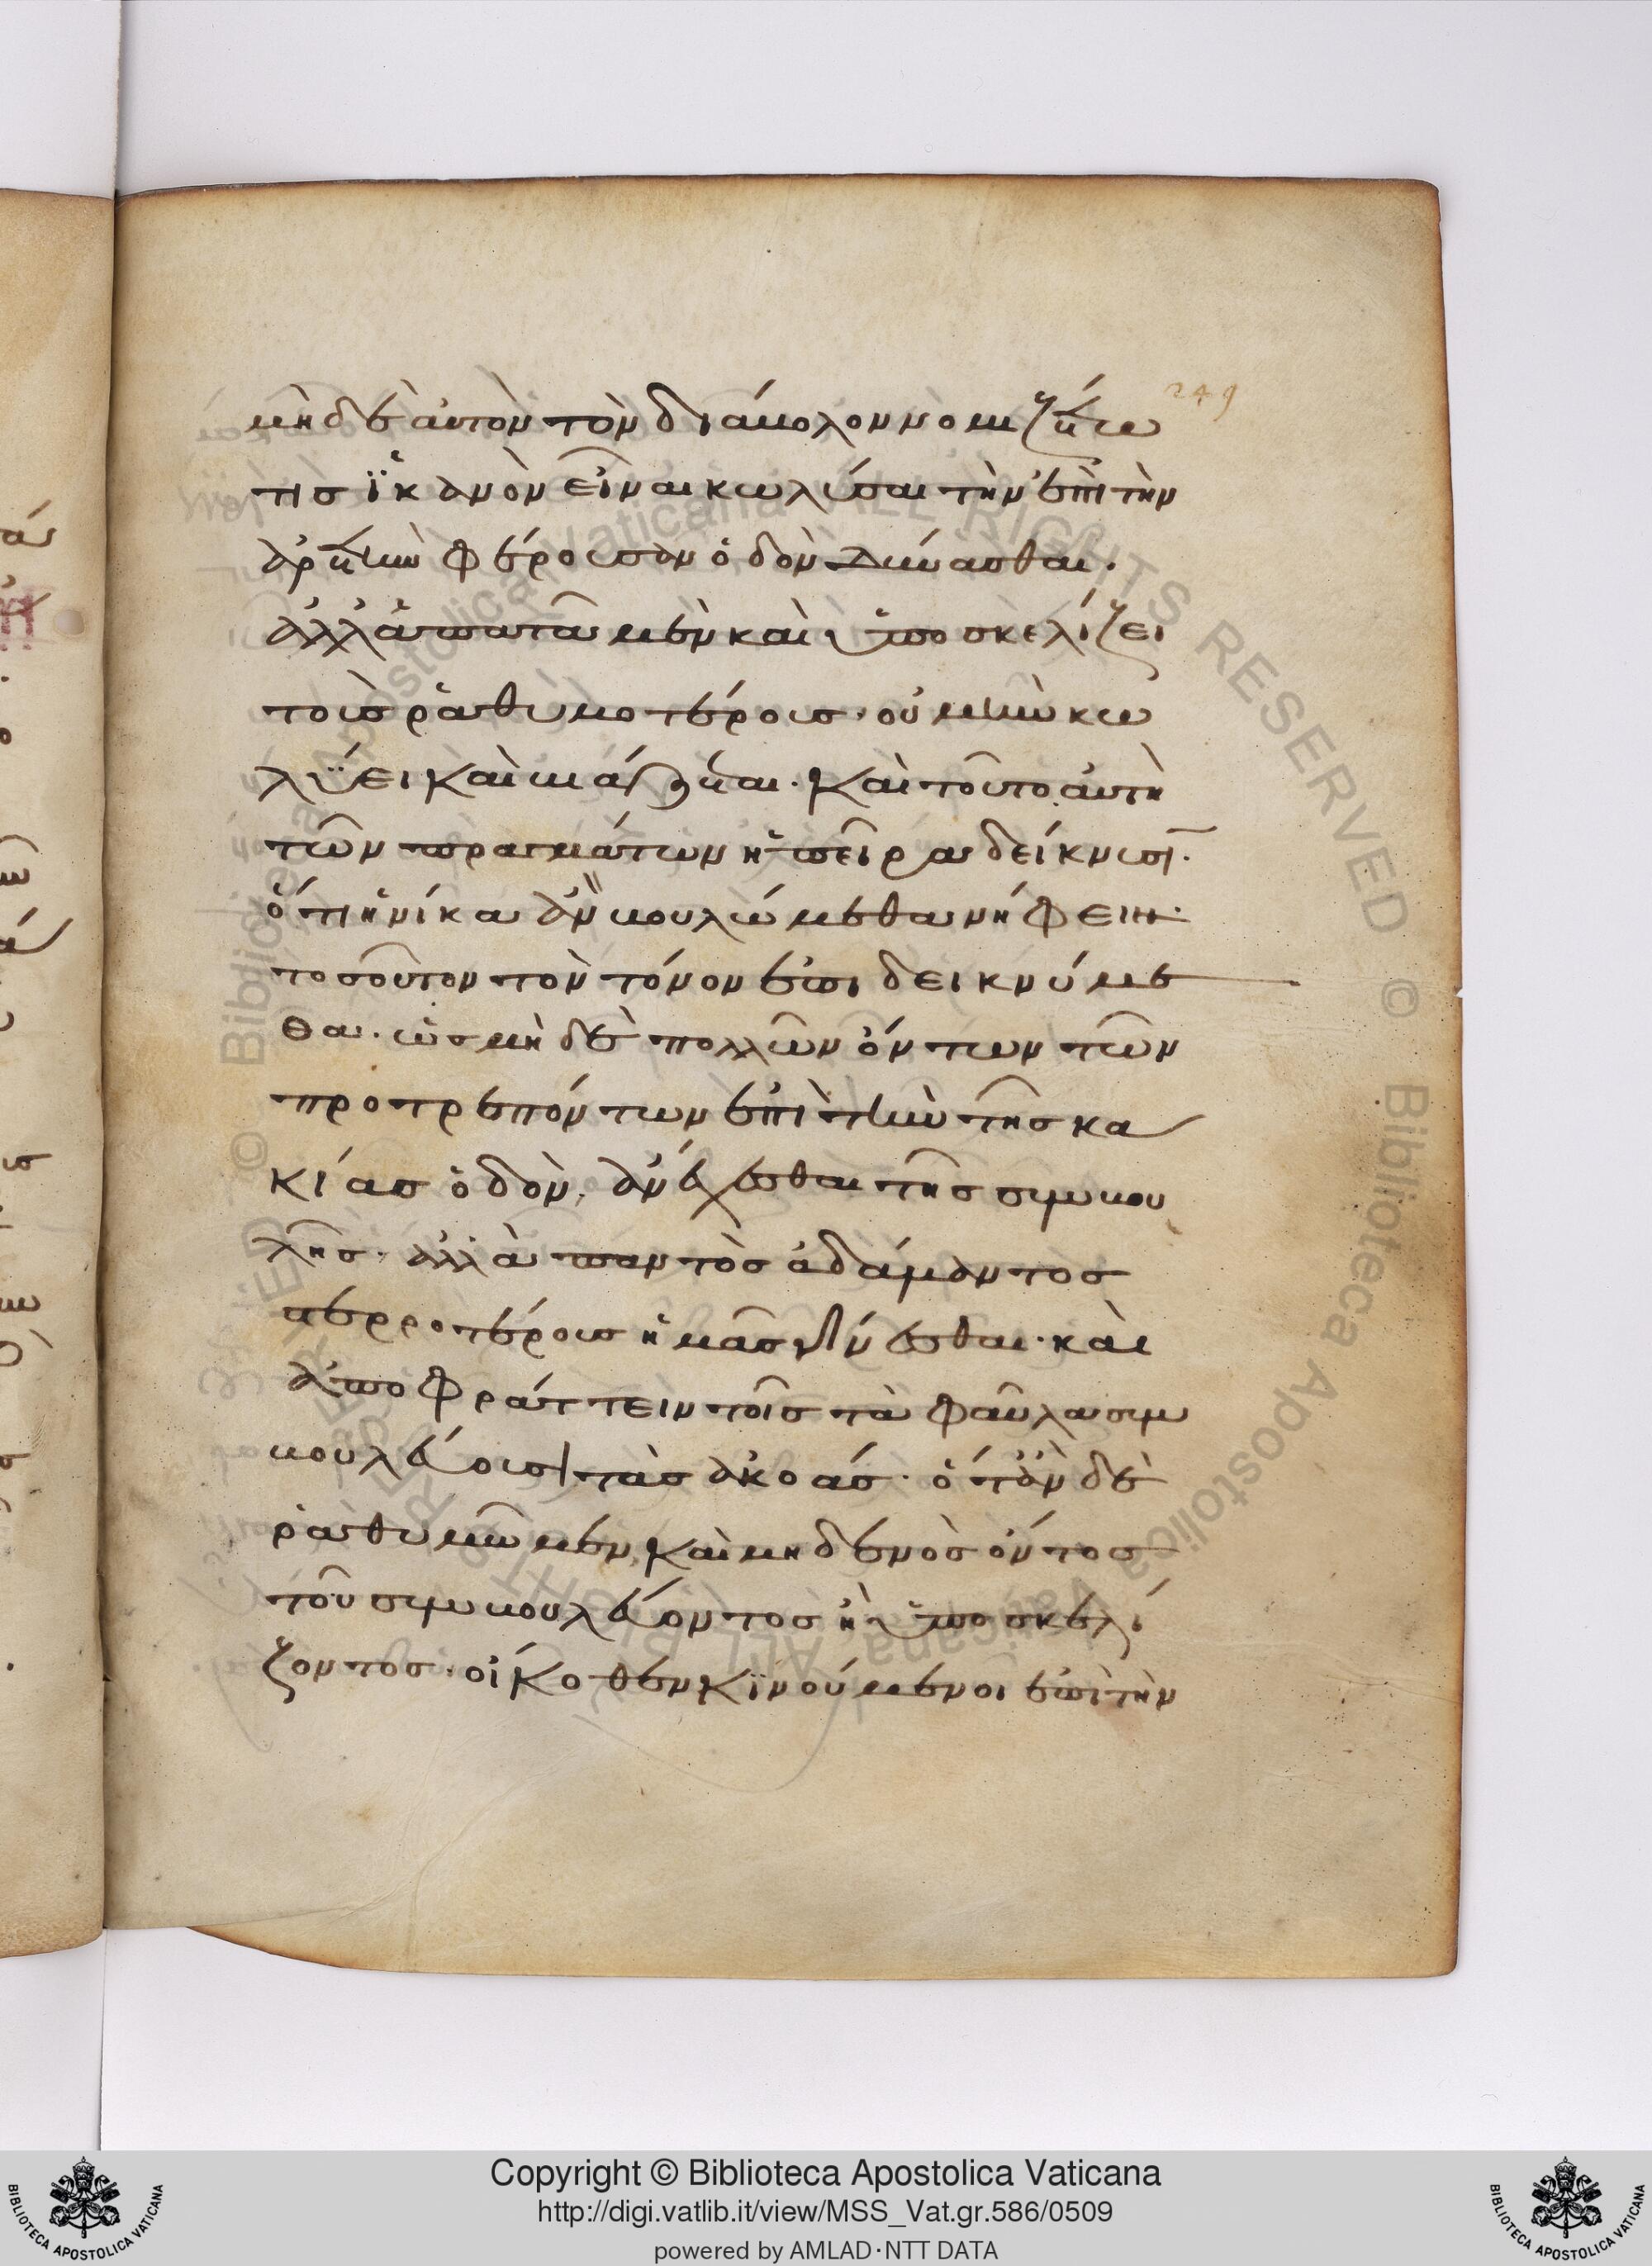 249
μὴδὲ αὐτὸν τὸν διάβολον νομιζέτω
τισ ϊκανὸν εἶναι κωλύσαι τὴν ἐπὶ τὴν
ἀρετὴν φέρουσαν ὁδὸν δύνασθαι.
ἀλλ' ἀπατᾶ μὲν καὶ ὑποσκελίζει
τοὺσ ῥαθυμοτέρουσ. οὐ μὴν κω
λύει καὶ βιάζεται. καὶ τοῦτο αὐτὴ
τῶν πραγμάτων ἡ πεῖρα δείκνυσι.
ὁπηνίκα ἂν βουλώμεθα νήφειν.
τοσοῦτον τὸν τόνον ἐπιδεικνύμε
θα. ὡς μὴδὲ πολλῶν ὄντων τῶν
προτρεπόντων ἐπὶ τὴν τῆσ κα
κίασ ὁδὸν, ἀνέχεσθαι τῆσ συμβου
λῆσ. ἀλλὰ παντὸσ ἀδάμαντοσ
στερροτέρουσ ἡμᾶσ γίνεσθαι. καὶ
ἀποφράττειν τοῖσ τὰ φαῦλα συμ
βουλεύουσι τὰσ ἀκοάσ. ὁπὸταν δὲ
ῥαθυμῶμεν, καὶ μηδενὸσ ὄντοσ
τοῦ συμβουλεύοντοσ ἢ ὑποσκελί
ζοντοσ. οἴκοθεν κϊνούμενοι ἐπὶ τὴν
Copyright © Biblioteca Apostolica Vaticana
http://digi.vatlib.it/view/MSS_Vat.gr.586/0509
powered by AMLAD·NTT DATA
BIBLIOTECA APOSTOLICA VATICANA
BIBLIOTECA APOSTOLICA VATICANA